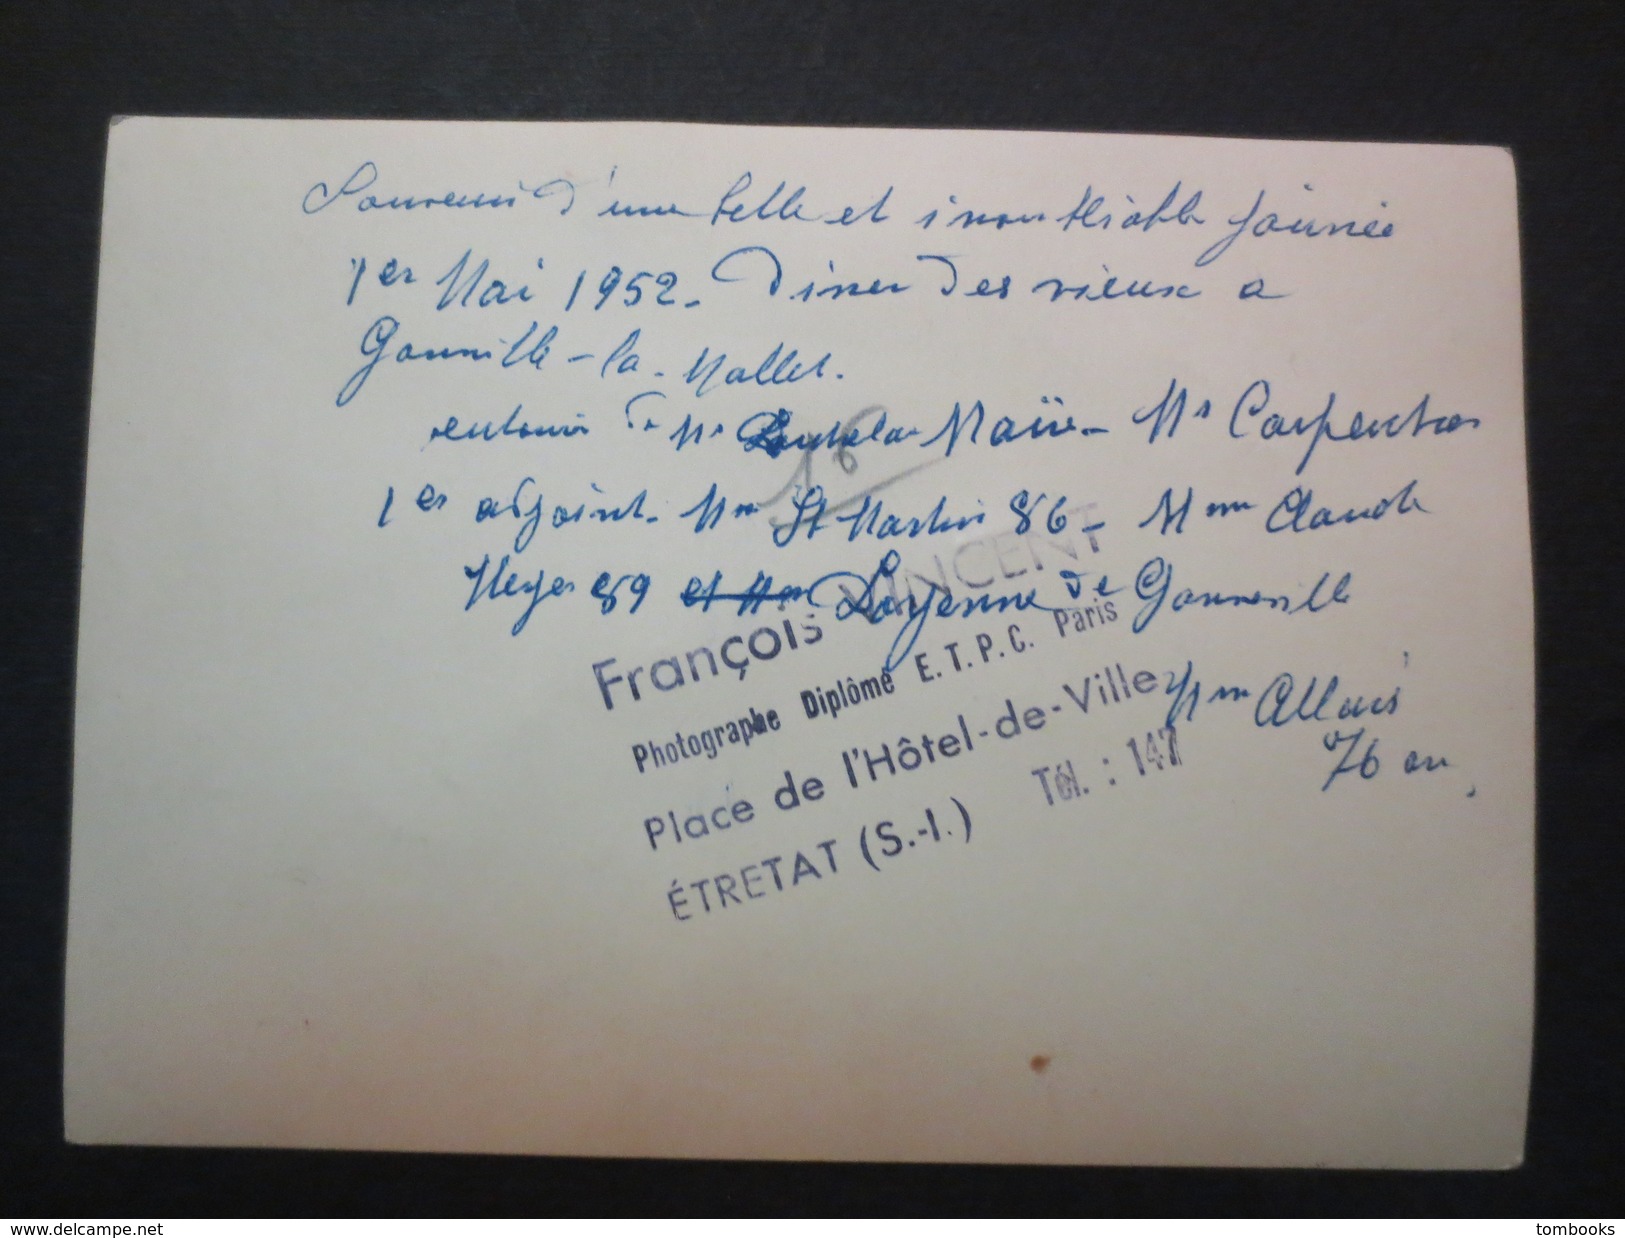 Souvenir d'une belle et inoubliable journée
1er Mai 1952 - Diner des vieux a
Gonneville-la-Mallet.
entouré de Mr Maire - Mr Carpentier
1er adjoint - Mme St Martin 86 - Mme Claude
89 et Mme Doyenne de Gonneville
Mme Allais
76 an
16
François VINCENT
Photographe Diplômé E.T.P.C. Paris
Place de l'Hôtel-de-Ville
ÉTRETAT (S.-I.) Tél. : 147
www.delcampe.net
tombooks